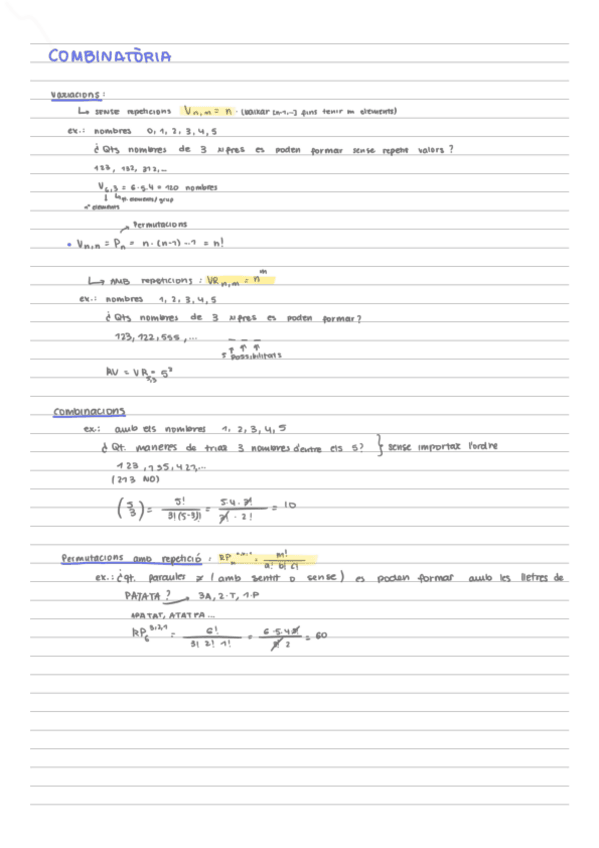 COMBINATÒRIA
Variacions:
↳ sense repeticions V n,m = n · (baixar (n-1...) fins tenir m elements)
ex.: nombres 0, 1, 2, 3, 4, 5
¿Qts nombres de 3 xifres es poden formar sense repetir valors?
123, 132, 312,...
V6,3 = 6·5·4 = 120 nombres
nº elements
elements/grup
Permutacions
• Vn,n = Pn = n · (n-1) ··· 1 = n!
↳ AMB repeticions : VR n,m = n^m
ex.: nombres 1, 2, 3, 4, 5
¿Qts nombres de 3 xifres es poden formar?
123, 122, 555, ...
5 possibilitats
VR5,3 = 5³
Combinacions
ex: amb els nombres 1, 2, 3, 4, 5
¿Qt. maneres de triar 3 nombres d'entre els 5? } sense importar l'ordre
123, 135, 421,...
(213 NO)
(5 3) = 5! / 3!(5-3)! = 5·4·3! / 3!·2! = 10
Permutacions amb repetició : RP = m! / a! b! c!
ex.: ¿qt. paraules ≠ (amb sentit o sense) es poden formar amb les lletres de
PATATA? → 3A, 2·T, 1·P
APATAT, ATATPA...
RP6 3,2,1 = 6! / 3! 2! 1! = 6·5·4·3! / 3! 2 = 60